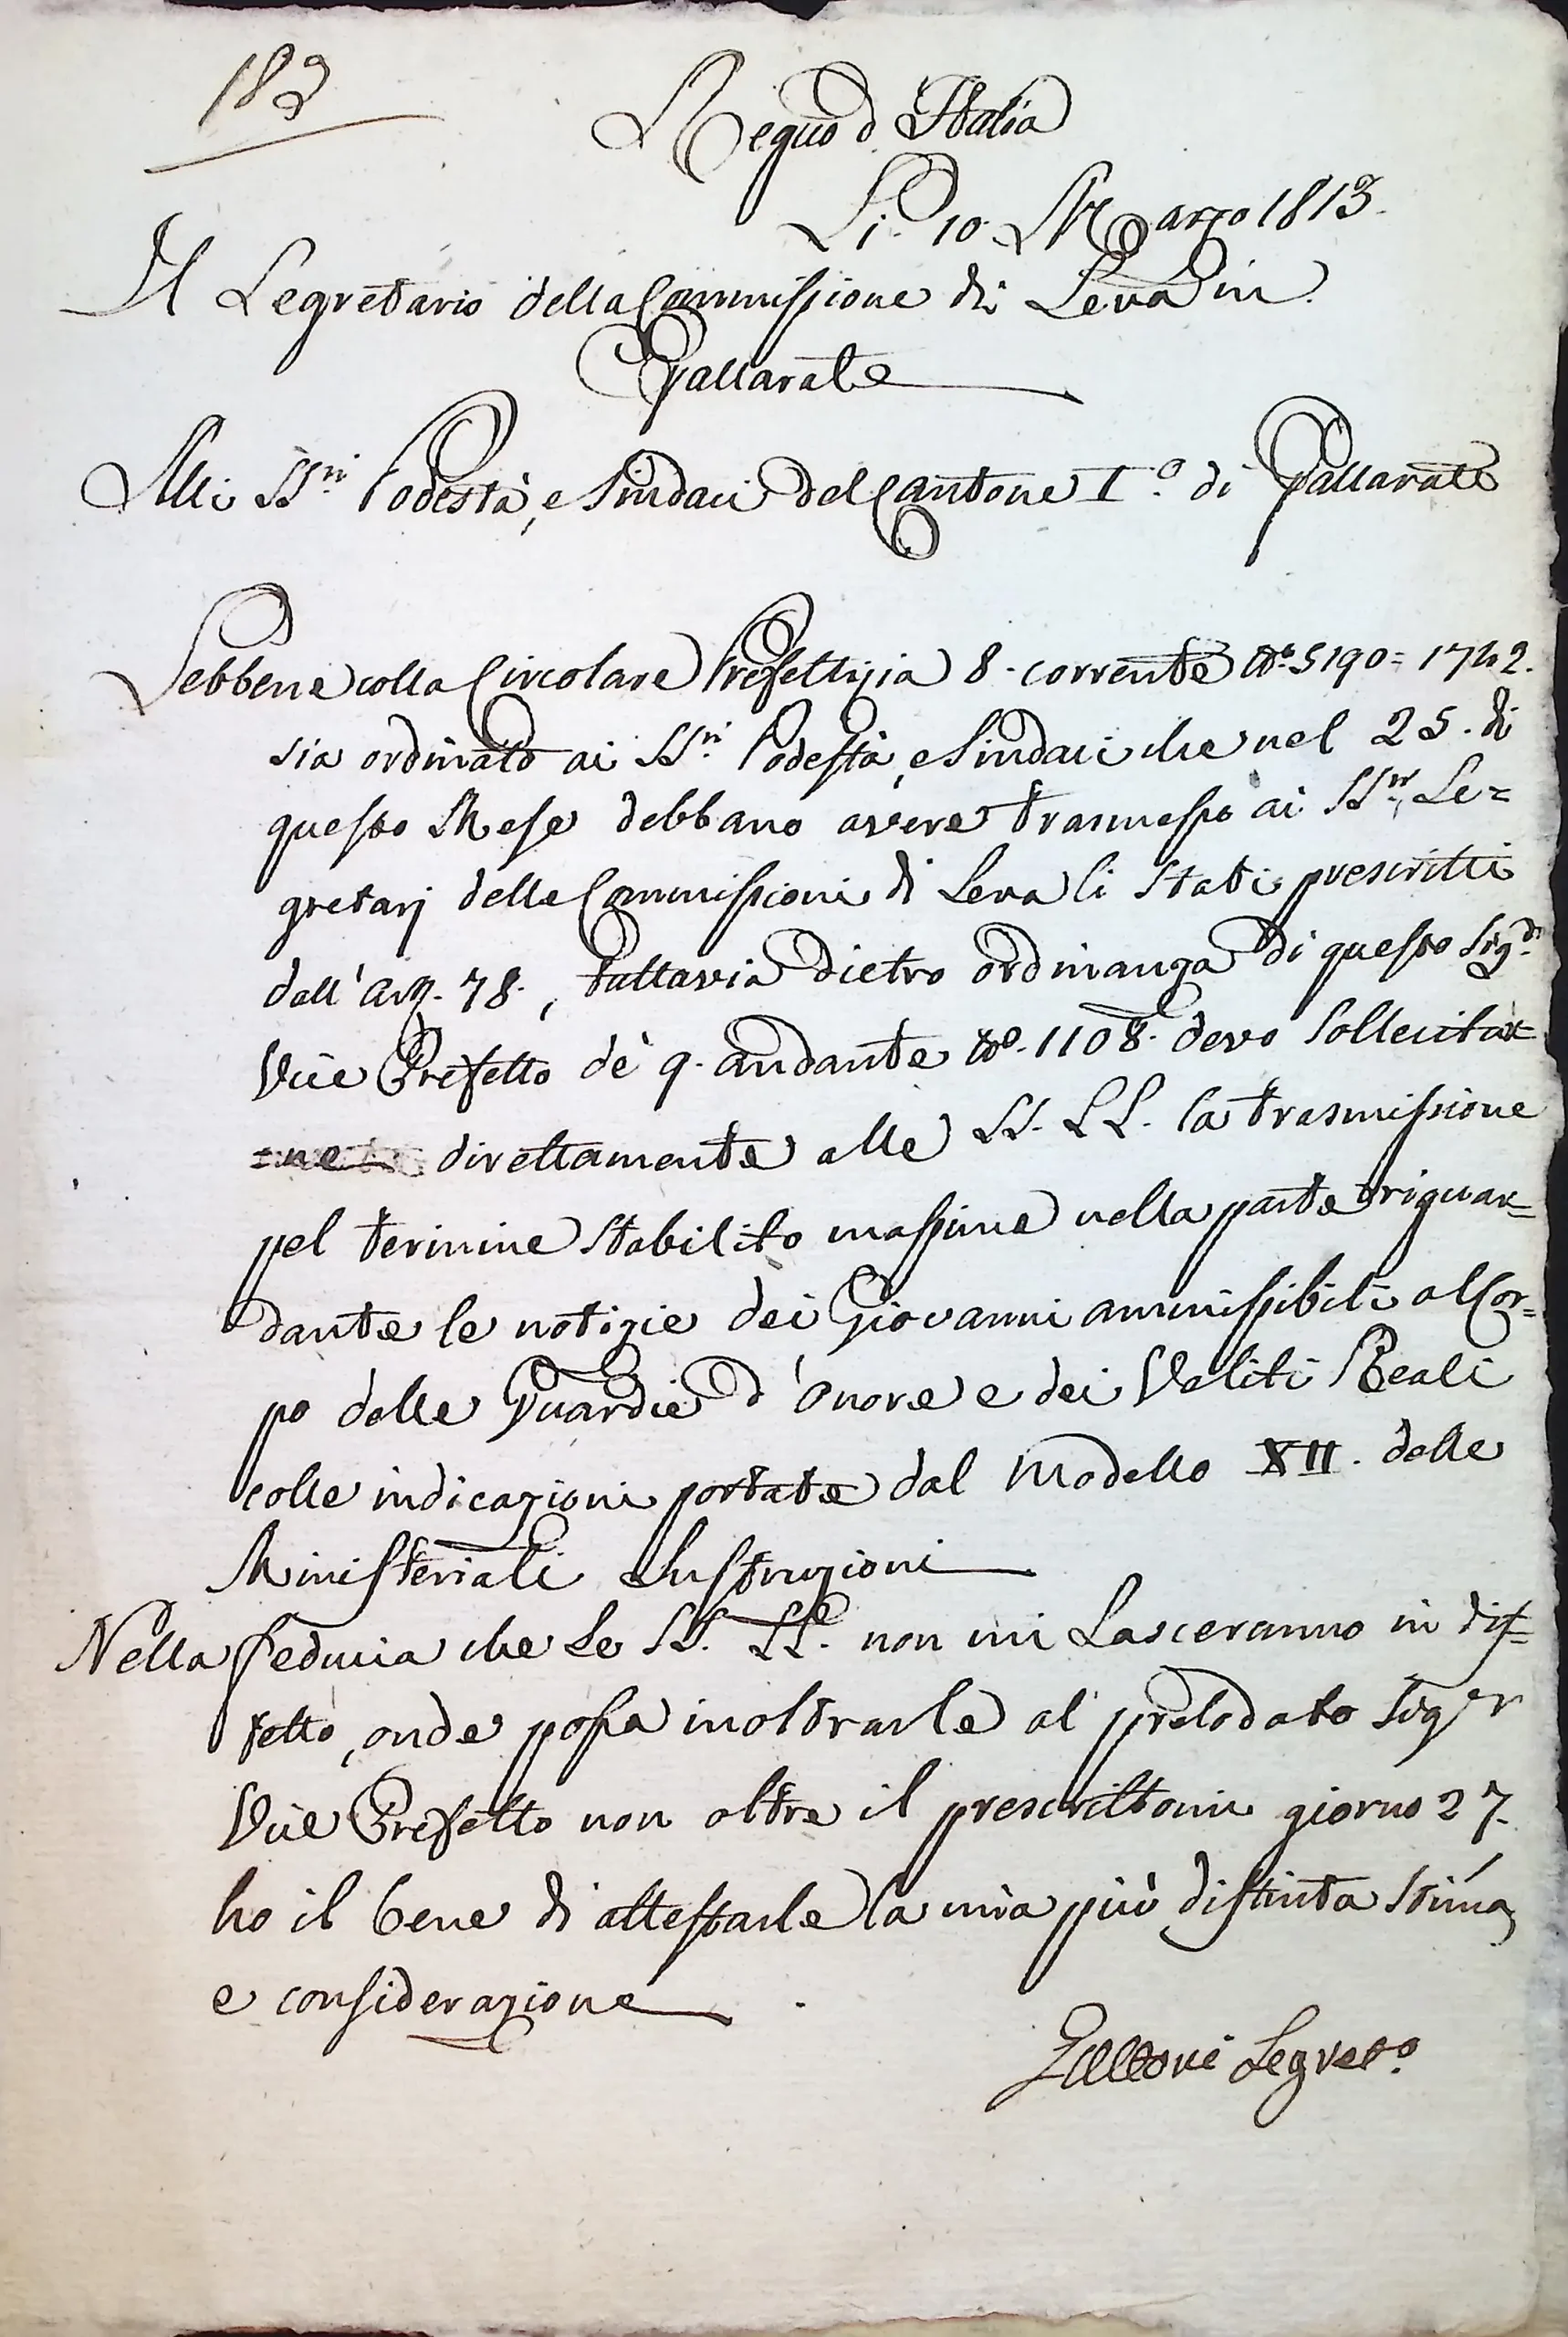 182
Regno d'Italia
Li 10. Marzo 1813.
Il Segretario della Commissione di Leva in
Gallarate
Alli SS.ri Podestà, e Sindaci del Cantone I.o di Gallarate
Sebbene colla Circolare Prefettizia 8. corrente N.o 5190=1742.
sia ordinato ai SS.ri Podestà, e Sindaci che nel 25. di
questo Mese debbano avere trasmesso ai SS.ri Se=
gretarj delle Commissioni di Leva li Stati prescritti
dall'Art. 78., tuttavia dietro ordinanza di questo Sig.r
Vice Prefetto de' 9. andante N.o 1108. devo sollecitar=
=ne direttamente alle SS. LL. la trasmissione
pel termine stabilito massime nella parte riguar=
dante le notizie dei Giovanni ammissibili al Cor=
po delle Guardie d'Onore e dei Veliti Reali
colle indicazioni portate dal Modello XII. delle
Ministeriali Instruzioni
Nella feducia che Le SS. LL. non mi Lasceranno in dif=
fetto, onde possa inoltrarle al prelodato Sig.r
Vice Prefetto non oltre il prescrittomi giorno 27.
ho il bene di attestarle la mia più distinta stima,
e considerazione
Segret.o